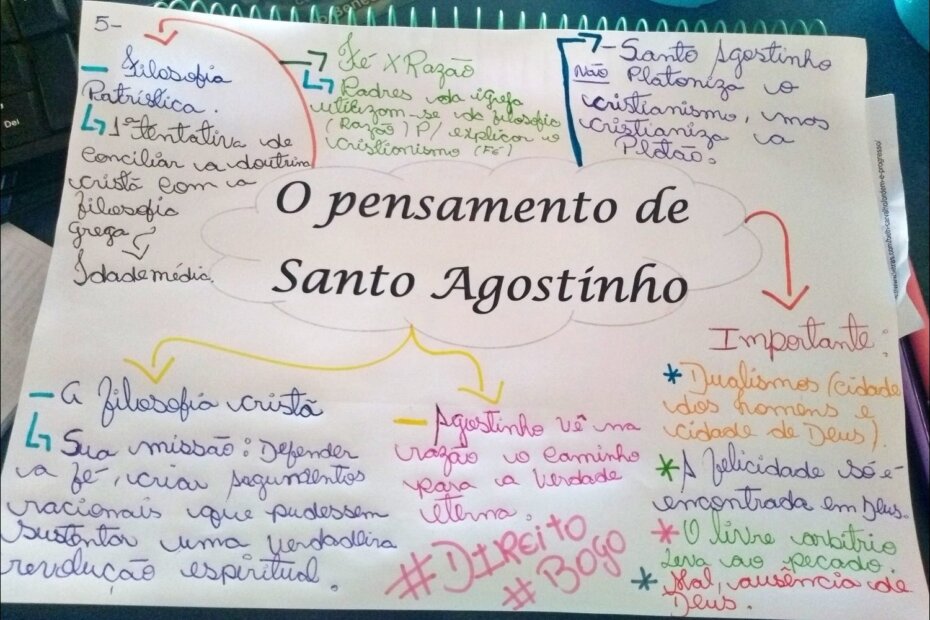 5-
- Filosofia
Patrística.
1ª tentativa de
conciliar a doutrina
cristã com a
filosofia
grega
Idade média.
Fé X Razão
Padres da igreja
utilizam-se da filosofia
(Razão) P/ explicar o
cristianismo (Fé)
- Santo Agostinho
não Platoniza o
cristianismo, mas
cristianiza a
Platão.
O pensamento de
Santo Agostinho
- A filosofia cristã
Sua missão: Defender
a fé, criar argumentos
racionais que pudessem
sustentar uma verdadeira
revolução espiritual.
- Agostinho vê na
razão o caminho
para a Verdade
eterna.
#DIREITO
#BOGO
Importante:
* Dualismos (cidade
dos homens e
cidade de Deus).
* A felicidade só é
encontrada em Deus.
* O livre arbítrio
leva ao pecado.
* Mal, ausência de
Deus.
Del